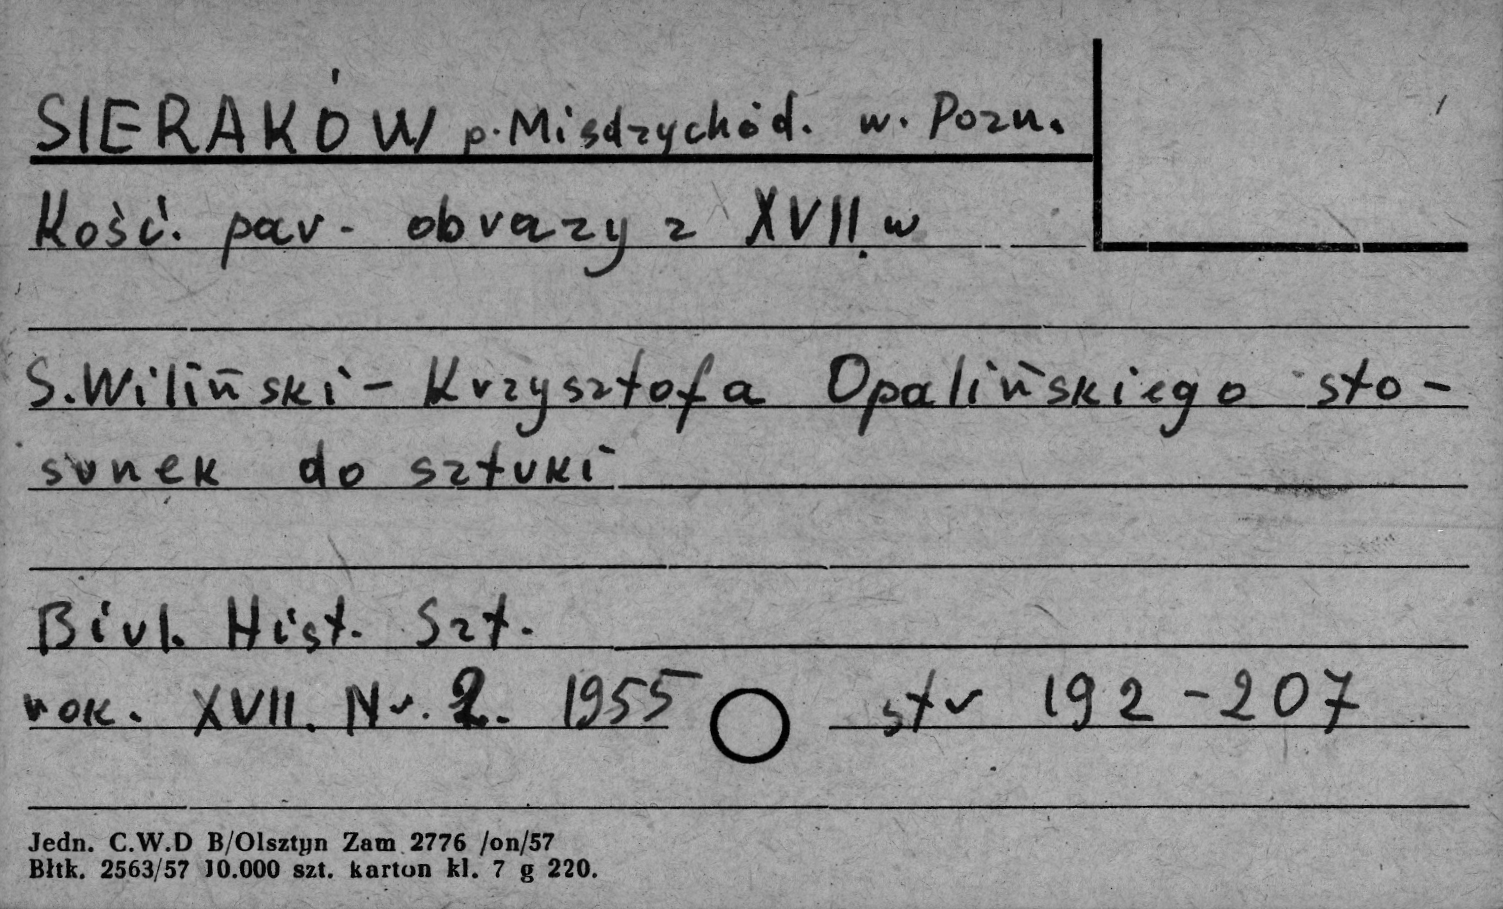 SIERAKÓW p. Misdzychód. w. Pozn.
Kość. par. obrazy z XVII w
S. Wiliński - Krzysztofa Opalińskiego sto-
sunek do sztuki
Biul. Hist. Szt.
rok. XVII. Nr. 2. 1955 str 192-207
Jedn. C.W.D B/Olsztyn Zam 2776 /on/57
Błtk. 2563/57 10.000 szt. karton kl. 7 g 220.